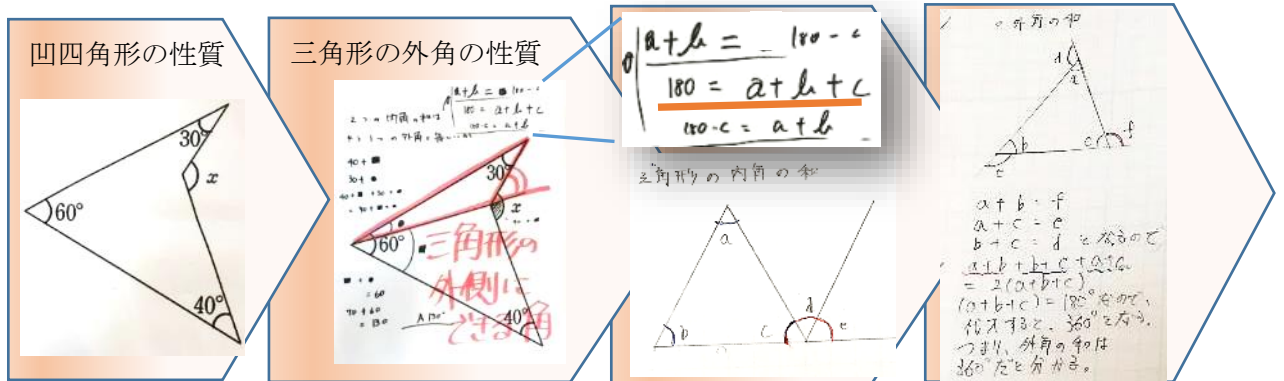 凹四角形の性質
30°
x
60°
40°
三角形の外角の性質
2つの内角の和は
a+b = 180-c
180 = a+b+c
180-c = a+b
40+■
30+●
30°
x
60°
■+●
=60
70+60
=130
A 130°
40°
三角形の
外側に
できる角
a+b = 180-c
180 = a+b+c
180-c = a+b
三角形の内角の和
a
b
c
d
e
外角の和
d
a
b
c
f
e
a+b=f
a+c=e
b+c=d となるので
a+b+b+c+a+c
=2(a+b+c)
(a+b+c)=180°なので、
代入すると、360°となる。
つまり、外角の和は
360°だと分かる。